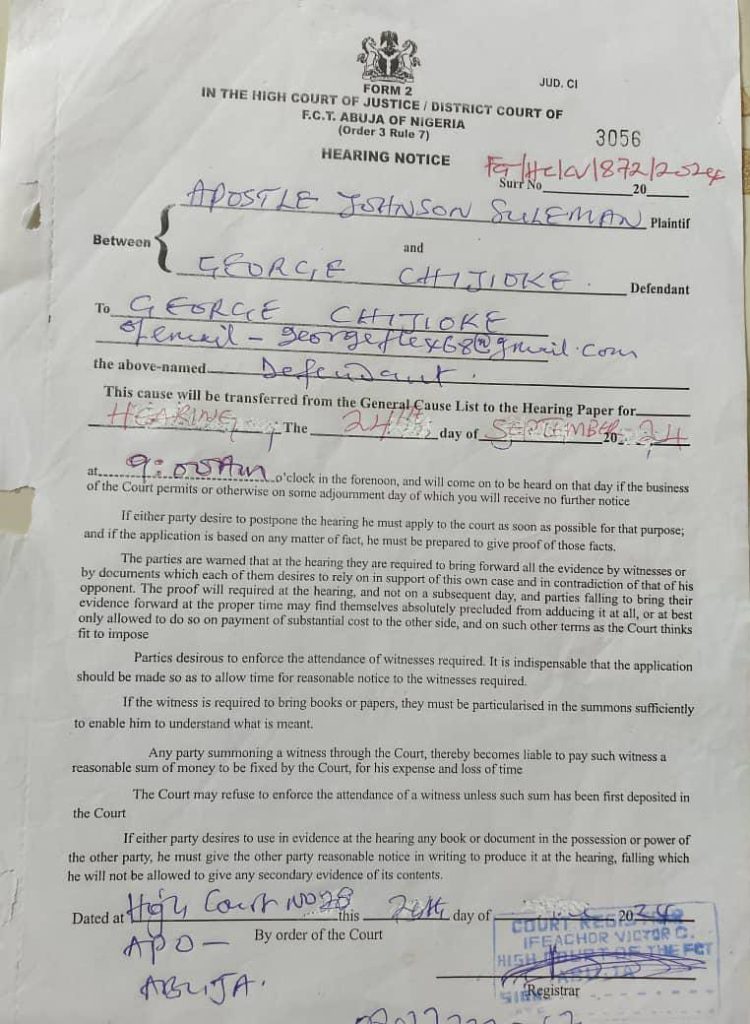 FORM 2
JUD. CI
IN THE HIGH COURT OF JUSTICE / DISTRICT COURT OF
F.C.T. ABUJA OF NIGERIA
(Order 3 Rule 7)
3056
HEARING NOTICE
Surr No 20
APOSTLE JOHNSON SULEMAN Plaintif
Between
and
GEORGE CHIJIOKE. Defendant
To GEORGE CHIJIOKE
of email - georgeflex68@gmail.com
the above-named Defendant.
This cause will be transferred from the General Cause List to the Hearing Paper for
HEARING The 24th day of SEPTEMBER 20 24
at 9:00Am o'clock in the forenoon, and will come on to be heard on that day if the business
of the Court permits or otherwise on some adjournment day of which you will receive no further notice
If either party desire to postpone the hearing he must apply to the court as soon as possible for that purpose;
and if the application is based on any matter of fact, he must be prepared to give proof of those facts.
The parties are warned that at the hearing they are required to bring forward all the evidence by witnesses or
by documents which each of them desires to rely on in support of this own case and in contradiction of that of his
opponent. The proof will required at the hearing, and not on a subsequent day, and parties falling to bring their
evidence forward at the proper time may find themselves absolutely precluded from adducing it at all, or at best
only allowed to do so on payment of substantial cost to the other side, and on such other terms as the Court thinks
fit to impose
Parties desirous to enforce the attendance of witnesses required. It is indispensable that the application
should be made so as to allow time for reasonable notice to the witnesses required.
If the witness is required to bring books or papers, they must be particularised in the summons sufficiently
to enable him to understand what is meant.
Any party summoning a witness through the Court, thereby becomes liable to pay such witness a
reasonable sum of money to be fixed by the Court, for his expense and loss of time
The Court may refuse to enforce the attendance of a witness unless such sum has been first deposited in
the Court
If either party desires to use in evidence at the hearing any book or document in the possession or power of
the other party, he must give the other party reasonable notice in writing to produce it at the hearing, falling which
he will not be allowed to give any secondary evidence of its contents.
Dated at High Court NO 28 this day of 20 24
APO - By order of the Court
ABUJA.
COURT REGISTRAR
IFEACHOR VICTOR C.
HIGH COURT OF THE FCT
ABUJA
SIGN
Registrar